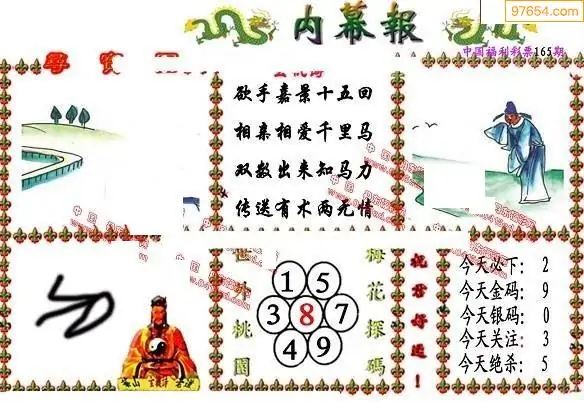 97654.com
内幕報
中国福利彩票165期
欲手嘉景十五回
相亲相爱千里马
双数出来知马力
传送有术两无情
世外桃園
1 5
3 8 7
4 9
梅花探碼
祝君好運！
今天必下：2
今天金码：9
今天银码：0
今天关注：3
今天绝杀：5